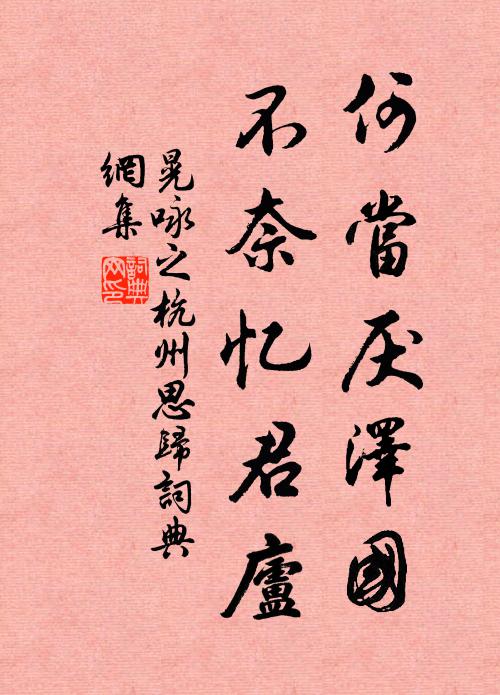 何當厌澤國
不奈忆君廬
晃咏之杭州思歸詞典
網集
詞典网印